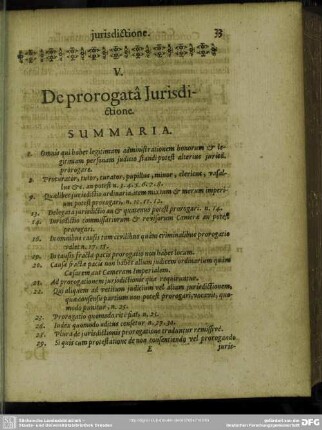 jurisdictione. 33
V.
De prorogatâ Jurisdi-
ctione.
SUMMARIA.
1. Omnis qui habet legitimam administrationem bonorum & le-
gitimam personam judicio standi potest alterius jurisd.
prorogare.
2. Procurator, tutor, curator, pupillus, minor, clericus, vasal-
lus &c. an possit n. 3. 4. 5. 6. 7. 8.
9. Qualibet jurisdictio ordinaria, item mixtum & merum imperi-
um potest prorogari. n. 10. 11. 12.
13. Delegata jurisdictio an & quatenus possit prorogari. n. 14.
15. Jurisdictio commissariorum & revisorum Cameræ an possit
prorogari.
16. In omnibus causis tam civilibus quàm criminalibus prorogatio
valet n. 17. 18.
19. In causis fractæ pacis prorogatio non habet locum.
20. Causæ fractæ pacis non habet alium judicem ordinarium quàm
Cæsarem aut Cameram Imperialem.
21. Ad prorogationem jurisdictionis quæ requirantur.
22. Qui aliquem ad vetitum judicium vel alium jurisdictionem,
quæ consensu partium non potest prorogari, vocavit, quo-
modo puniatur. n. 25.
25. Prorogatio quomodo fiat, n. 25.
26. Index quomodo censetur n. 29. 30.
28. Plura de jurisdictionis prorogatione traduntur remissivè.
29. Si quis cum protestatione de non consentiendo vel prorogando
E juris-